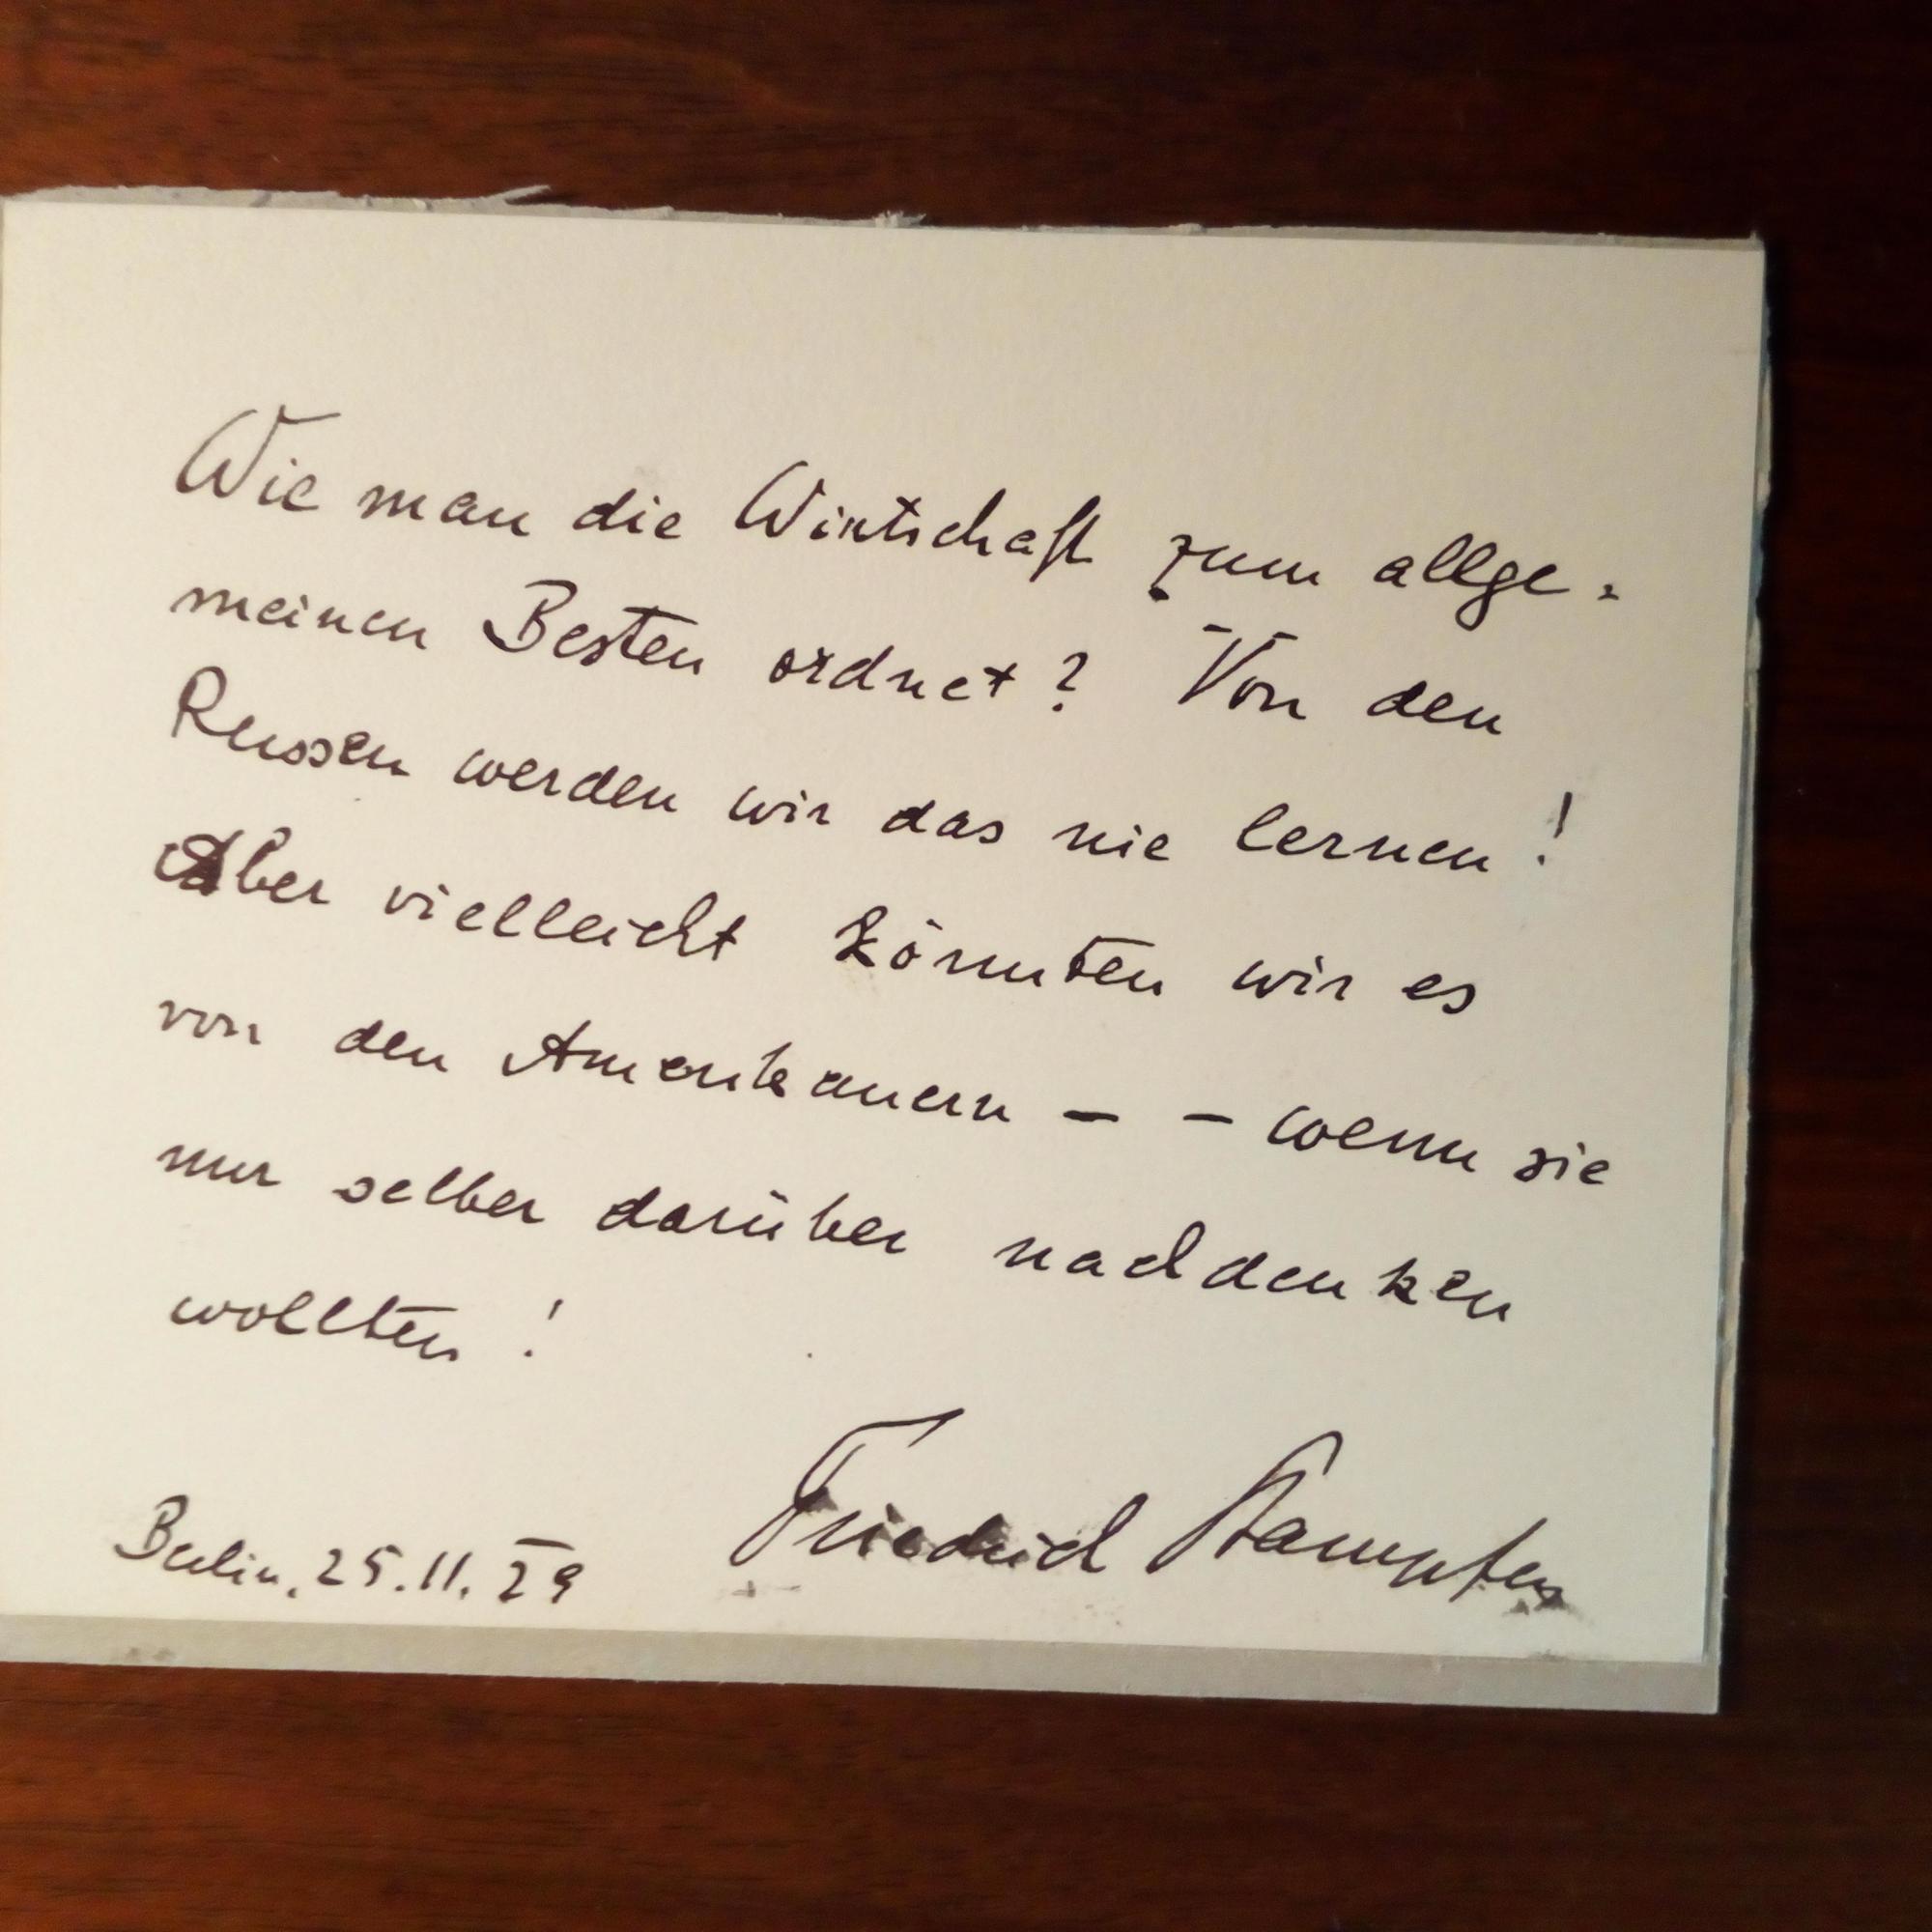 Wie man die Wirtschaft zum allge-
meinen Besten ordnet? Von den
Russen werden wir das nie lernen!
Aber vielleicht könnten wir es
von den Amerikanern – – wenn sie
nur selber darüber nachdenken
wollten!
Friedrich Stampfer
Berlin, 25.11.29